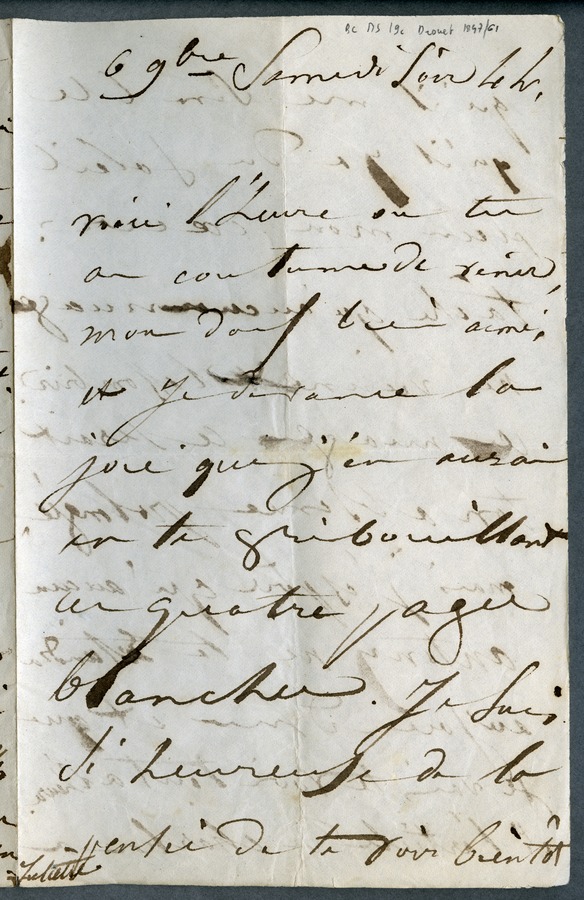 Bc MS 19c Drouet 1847/61
6 9bre Samedi soir 4 h.
voici l'heure où tu
as coutume de venir,
mon doux bien aimé,
et je devance la
joie que j'en aurai
en te gribouillant
ces quatre pages
blanches. Je suis
si heureuse de la
pensée de te voir bientôt
Juliette